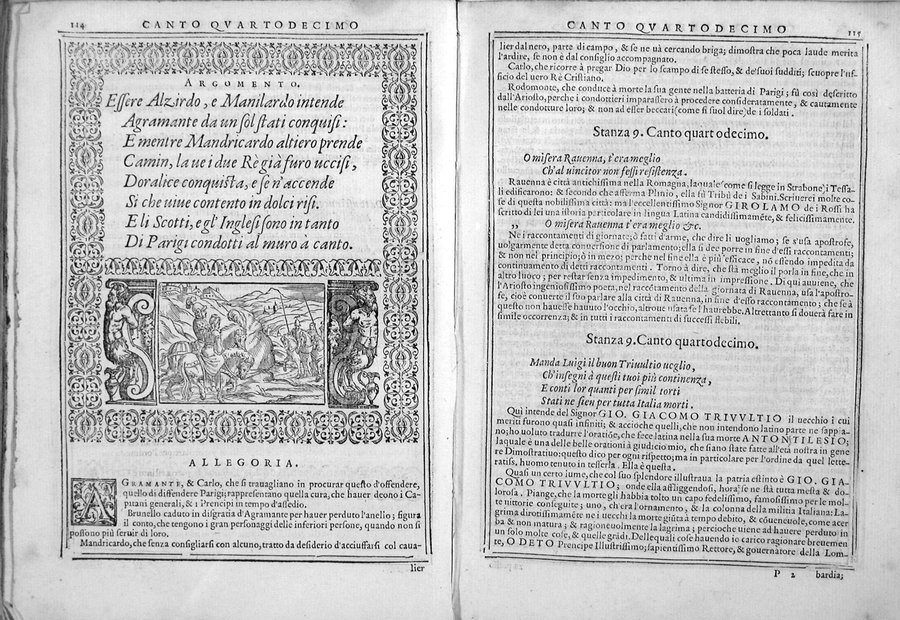 114
CANTO QVARTODECIMO
ARGOMENTO.
Essere Alzirdo, e Manilardo intende
Agramante da un sol stati conquisi:
E mentre Mandricardo altiero prende
Camin, la ue i due Rè già furo uccisi,
Doralice conquista, e se n'accende
Si che uiue contento in dolci risi.
E li Scotti, e gl' Inglesi sono in tanto
Di Parigi condotti al muro à canto.
ALLEGORIA.
AGRAMANTE, & Carlo, che si trauagliano in procurar questo d'offendere,
quello di diffendere Parigi; rappresentano quella cura, che hauer deono i Ca-
pitani generali, & i Prencipi in tempo d'assedio.
Brunello caduto in disgratia d'Agramante per hauer perduto l'anello; figura
il conto, che tengono i gran personaggi delle inferiori persone, quando non si
possono più seruir di loro.
Mandricardo, che senza consigliarsi con alcuno, tratto da desiderio d'acciuffarsi col caua-
lier
CANTO QVARTODECIMO
115
lier dal nero, parte di campo, & se ne uà cercando briga; dimostra che poca laude merita
l'ardire, se non è dal consiglio accompagnato.
Carlo, che ricorre à pregar Dio per lo scampo di se stesso, & de' suoi sudditi; scuopre l'uf-
ficio del uero Rè Cristiano.
Rodomonte, che conduce à morte la sua gente nella batteria di Parigi; fù così descritto
dall'Ariosto, perche i condottieri imparassero à procedere consideratamente, & cautamente
nelle condotture loro; & non ad esser beccari (come si suol dire) de i soldati.
Stanza 9. Canto quartodecimo.
O misera Rauenna, t'era meglio
Ch'al uincitor non fessi resistenza.
Rauenna è città antichissima nella Romagna, la quale (come si legge in Strabone) i Tessa-
li edificarono: & secondo che afferma Plinio, ella fù Tribù de i Sabini. Scriuerei molte co-
se di questa nobilissima città: ma l'eccellentissimo Signor GIROLAMO de i Rossi hà
scritto di lei una istoria particolare in lingua Latina candidissimamẽte, & felicissimamente.
„ O misera Rauenna t'era meglio &c.
Ne i raccontamenti di giornate, ò fatti d'arme, che dire li uogliamo; se s'usa apostrofe,
uolgarmente detta conuersione di parlamento; ella si dee porre in fine d'essi raccontamenti;
& non nel principio; ò in mezo; perche nel fine ella è più efficace, nõ essendo impedita da
continuamento di detti raccontamenti. Torno à dire, che stà meglio il porla in fine, che in
altro luogo; per restar senza impedimento, & ultima in impressione. Di qui auiene, che
l'Ariosto ingeniosissimo poeta, nel raccõtamento della giornata di Rauenna, usa l'apostro-
fe, cioè conuerte il suo parlare alla città di Rauenna, in fine d'esso raccontamento; che se à
questo non hauesse hauuto l'occhio, altroue usata se l'haurebbe. Altrettanto si douerà fare in
simile occorrenza; & in tutti i raccontamenti di successi flebili.
Stanza 9. Canto quartodecimo.
Manda Luigi il buon Triuultio ueglio,
Ch'insegni à questi tuoi più continenza,
E conti lor quanti per simil torti
Stati ne sien per tutta Italia morti.
Qui intende del Signor GIO. GIACOMO TRIVVLTIO il uecchio i cui
meriti furono quasi infiniti; & accioche quelli, che non intendono latino parte ne sappia-
no; ho uoluto tradurre l'oratiõe, che fece latina nella sua morte ANTON TILESIO;
laquale è una delle belle orationi à giudicio mio, che siano state fatte all'età nostra in gene
re Dimostratiuo: questo dico per ogni rispetto; ma in particolare per l'ordine da quel lette-
ratiss. huomo tenuto in tesserla. Ella è questa.
Quasi un certo lume, che col suo splendore illustraua la patria estinto è GIO. GIA-
COMO TRIVVLTIO; onde ella affliggendosi, hora se ne stà tutta mesta & do-
lorosa. Piange, che la morte gli habbia tolto un capo fedelissimo, famosissimo per le mol-
te uittorie conseguite; uno, ch'era l'ornamento, & la colonna della militia Italiana: La-
grima dirottissimamẽte nè i uecchi la morte giũta à tempo debito, & cõueneuole, come acer
ba & non matura; & ragioneuolmente la lagrima; percioche uiene ad hauere perduto in
un solo molte cose, & quelle grãdi. Delle quali cose hauendo io carico ragionare breuemen
te, O DETO Prencipe Illustrissimo; sapientissimo Rettore, & gouernatore della Lom-
P 2
bardia;